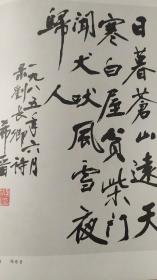 日暮蒼山遠天
寒白屋貧柴門
聞犬吠風雪夜
歸人
一九八五年六月
录劉長卿诗